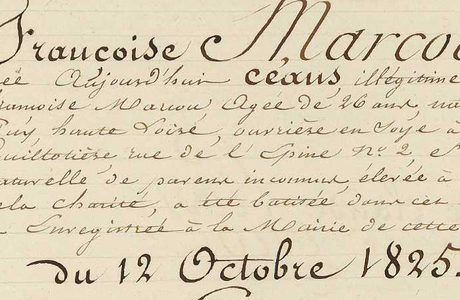 Francoise Marcou
éë Aujourd'hui céans illégitime
ramoise Marcou Agee de 26 ans
Puy haute Loire, ouvrière en Soye à
uillotière rue de l'Epine n.° 2, et
aturelle de parens inconnus élevée à
ela charité, a été batisée dans cet
Enregistrée à la Mairie de cette
du 12 Octobre 1825.